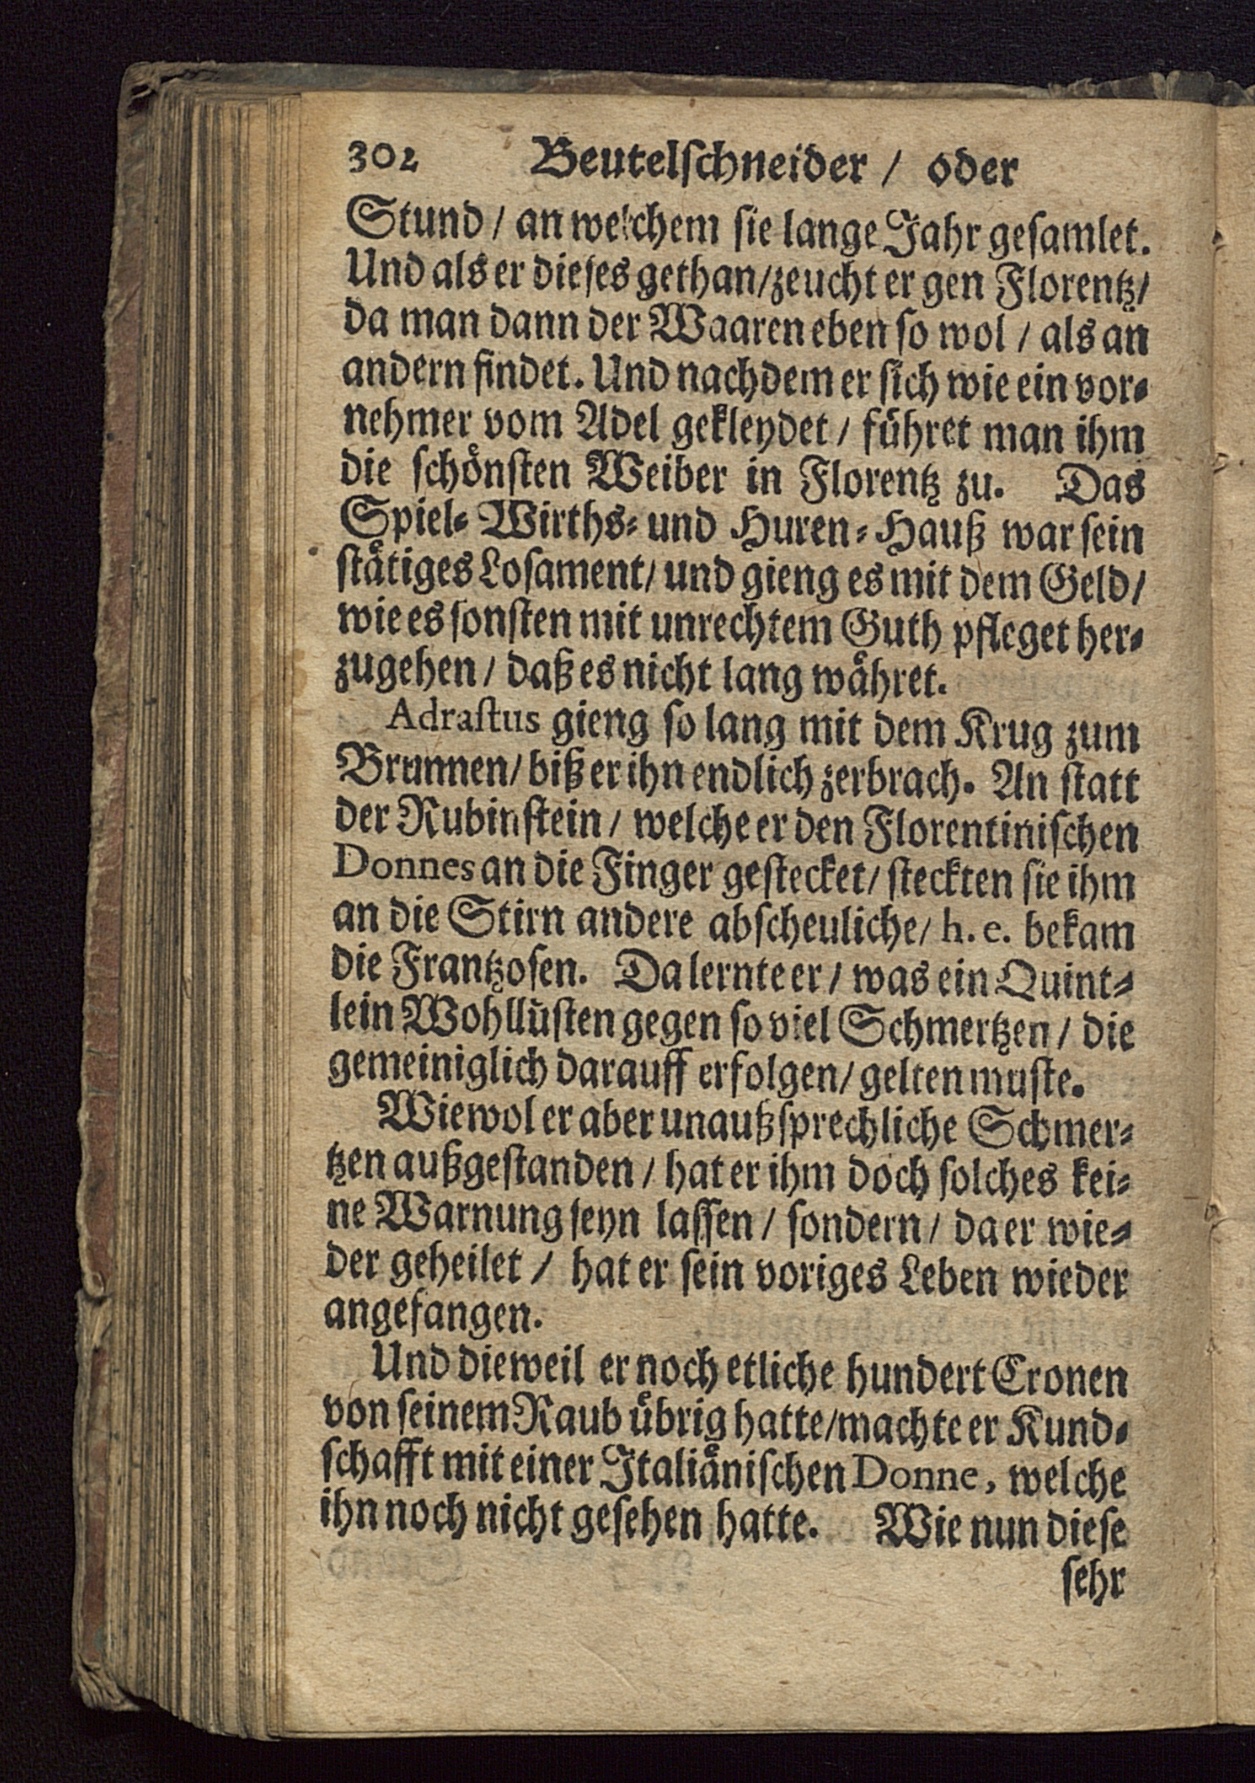 302 Beutelſchneider / oder
Stund / an welchem ſie lange Jahr geſamlet.
Und als er dieſes gethan / zeucht er gen Florentz /
da man dann der Waaren eben ſo wol / als an
andern findet. Und nachdem er ſich wie ein vor⸗
nehmer vom Adel gekleydet / fuͤhret man ihm
die ſchoͤnſten Weiber in Florentz zu. Das
Spiel⸗ Wirths⸗ und Huren⸗Hauß war ſein
ſtaͤtiges Loſament / und gieng es mit dem Geld /
wie es ſonſten mit unrechtem Guth pfleget her⸗
zugehen / daß es nicht lang waͤhret.
Adraſtus gieng ſo lang mit dem Krug zum
Brunnen / biß er ihn endlich zerbrach. An ſtatt
der Rubinſtein / welche er den Florentiniſchen
Donnes an die Finger geſtecket / ſteckten ſie ihm
an die Stirn andere abſcheuliche / h. e. bekam
die Frantzoſen. Da lernte er / was ein Quint⸗
lein Wohlluͤſten gegen ſo viel Schmertzen / die
gemeiniglich darauff erfolgen / gelten muſte.
Wiewol er aber unaußſprechliche Schmer⸗
tzen außgeſtanden / hat er ihm doch ſolches kei⸗
ne Warnung ſeyn laſſen / ſondern / da er wie⸗
der geheilet / hat er ſein voriges Leben wieder
angefangen.
Und dieweil er noch etliche hundert Cronen
von ſeinem Raub uͤbrig hatte / machte er Kund⸗
ſchafft mit einer Italiaͤniſchen Donne, welche
ihn noch nicht geſehen hatte. Wie nun dieſe
ſehr